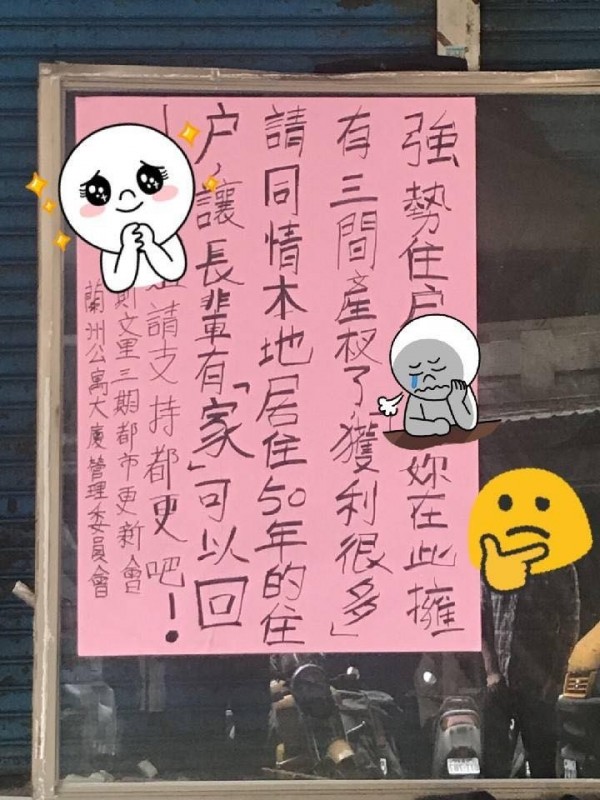 強勢住户妳在此擁
有三間產权了「獲利很多」
請同情本地居住50年的住
户，讓長輩有「家」可以回
請支持都更吧！
斯文里三期都市更新會
蘭洲公寓大廈管理委員會